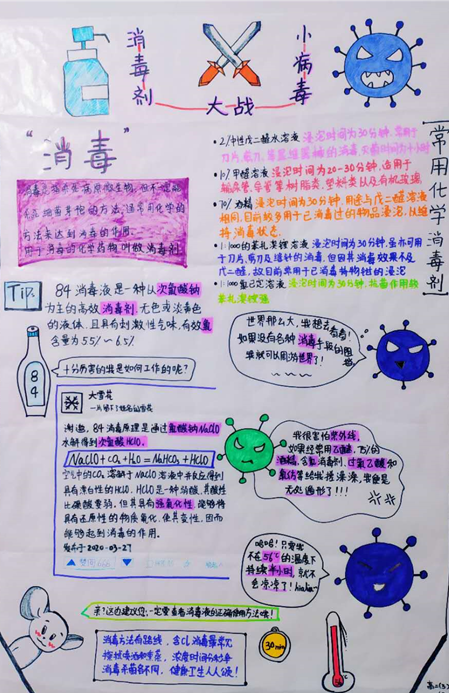 消毒剂
大战
小病毒
"消毒"
消毒是指杀死病原微生物,但不一定能
杀死细菌芽孢的方法。通常用化学的
方法来达到消毒的作用。
用于消毒的化学药物叫做消毒剂
常用化学消毒剂
•2%中性戊二醛水溶液 浸泡时间为30分钟,常用于
•10%甲醛溶液 浸泡时间为20-30分钟,适用于
输尿管、导管等树脂类、塑料类以及有机玻璃
•70%酒精 浸泡时间为30分钟,用途与戊二醛溶液
相同,目前较多用于已消毒过的物品浸泡,以维
持消毒状态。
•1:1000的苯扎溴铵溶液 浸泡时间为30分钟,虽亦可用
于刀片、剪刀、缝针的消毒,但因其消毒效果不及
戊二醛,故目前常用于已消毒持物钳的浸泡
•1:1000氯己定溶液 浸泡时间为30分钟,抗菌作用较
苯扎溴铵强
Tip.
84消毒液是一种以次氯酸钠
为主的高效消毒剂,无色或淡黄色
的液体,且具有刺激性气味,有效氯
含量为5.5%~6.5%
世界那么大,我想去看看!
如果没有各种消毒手段的阻碍
我就可以周游世界了!
84
十分厉害的我是如何工作的呢?
大雪花
谢邀,84消毒原理是通过氯酸钠NaClO
水解得到次氯酸HClO。
NaClO+CO₂+H₂O=NaHCO₃+HClO
空气中的CO₂溶解于NaClO溶液中并反应得到
具有漂白性的HClO. HClO是一种弱酸,其酸性
比碳酸要弱,但其具有强氧化性能够将
具有还原性的物质氧化,使其变性,因而
能够起到消毒的作用。
发布于2020-03-27
我很害怕紫外线,
如果经常用乙醚、75%的
酒精、含氯消毒剂、过氧乙酸和
氯仿等给我搓澡澡,我便是
无处遁形了!!!
哈哈!只要我
不在56℃的温度下
持续半小时,就不
会凉凉了!
亲?这边建议您,一定要看看消毒液的正确使用方法哦!
30min
消毒方法有路线,含Cl消毒最常见
擦拭喷洒和熏蒸,浓度时间分秒争
消毒杀菌各不同,健康卫生人人爱!